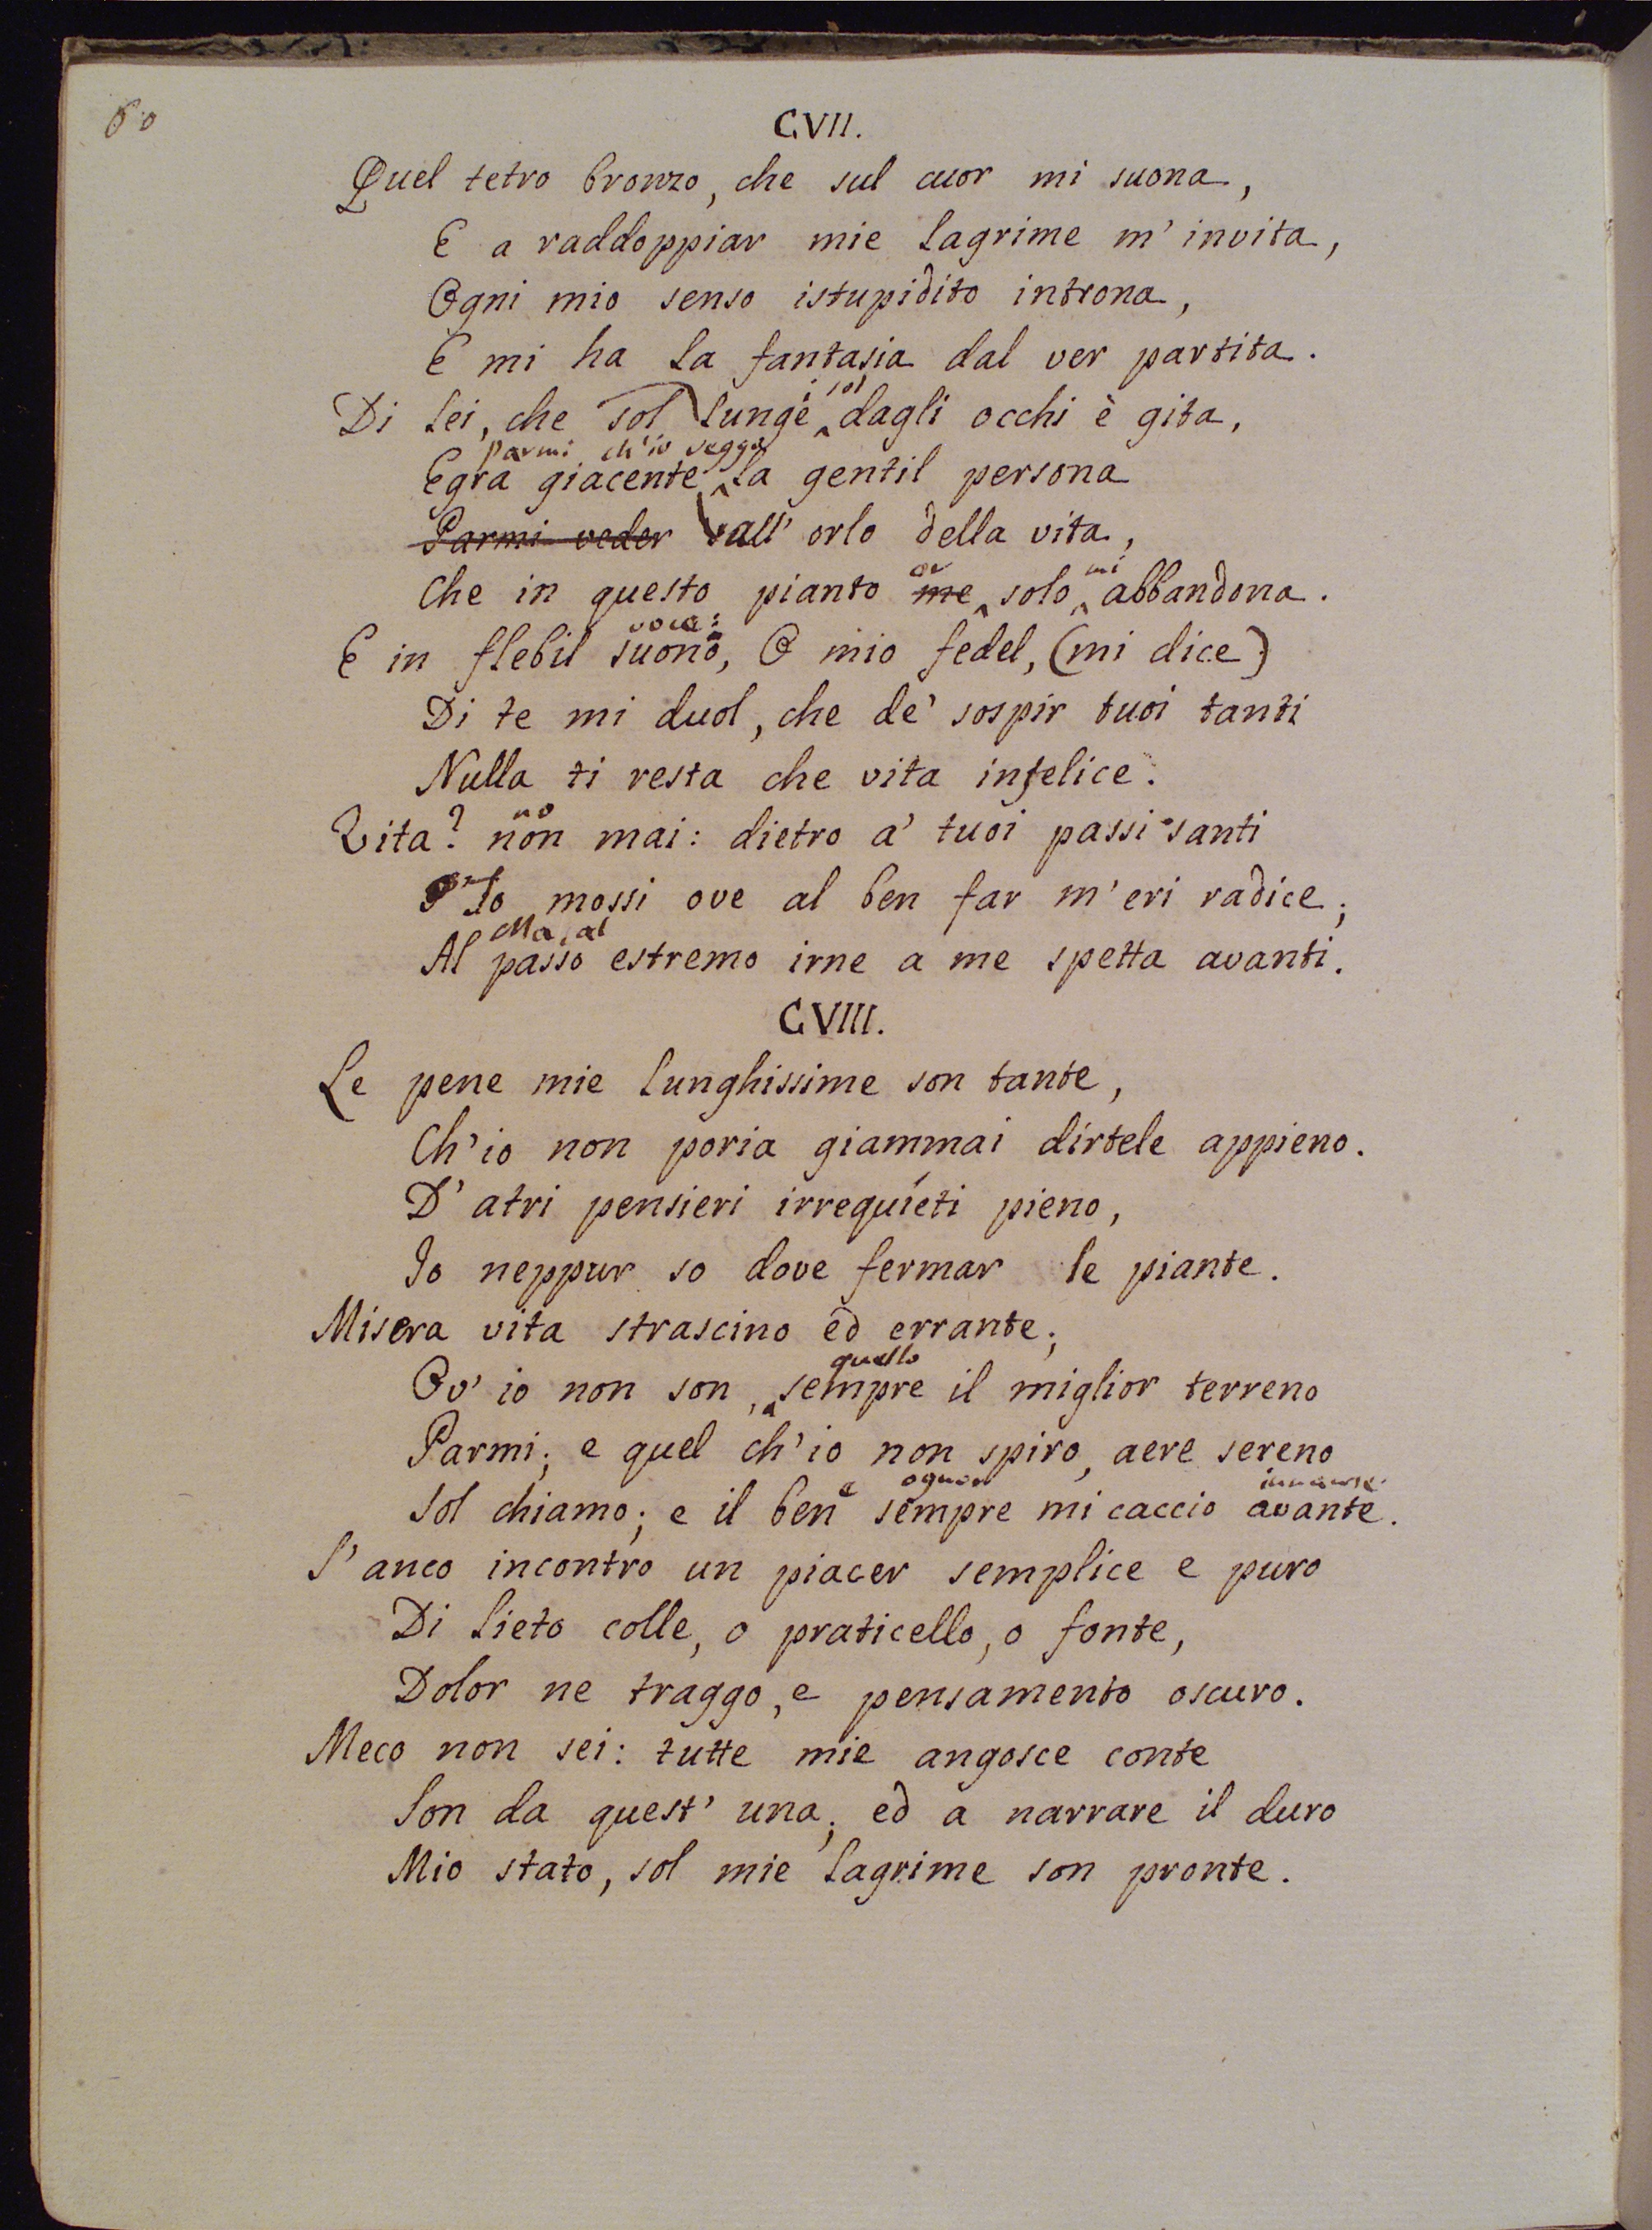 60
CVII.
Quel tetro bronzo, che sul cuor mi suona,
E a raddoppiar mie lagrime m' invita,
Ogni mio senso istupidito introna,
E mi ha la fantasia dal ver partita.
sol
Di lei, che sol lunge dagli occhi è gita,
Parmi ch'io veggo
Egra giacente la gentil persona
Parmi veder sull' orlo della vita,
or mi
Che in questo pianto me solo abbandona.
voce:
E in flebil suono, O mio fedel, (mi dice)
Di te mi duol, che de' sospir tuoi tanti
Nulla ti resta che vita infelice.
no
Vita? non mai: dietro a' tuoi passi santi
Io mossi ove al ben far m' eri radice;
Ma, al
Al passo estremo irne a me spetta avanti.
CVIII.
Le pene mie lunghissime son tante,
Ch'io non poria giammai dirtele appieno.
D' atri pensieri irrequieti pieno,
Io neppur so dove fermar le piante.
Misera vita strascino ed errante;
quello
Ov' io non son, sempre il miglior terreno
Parmi; e quel ch'io non spiro, aere sereno
e ognor
Sol chiamo; e il ben sempre mi caccio avante.
S' anco incontro un piacer semplice e puro
Di lieto colle, o praticello, o fonte,
Dolor ne traggo, e pensamento oscuro.
Meco non sei: tutte mie angosce conte
Son da quest' una; ed a narrare il duro
Mio stato, sol mie lagrime son pronte.